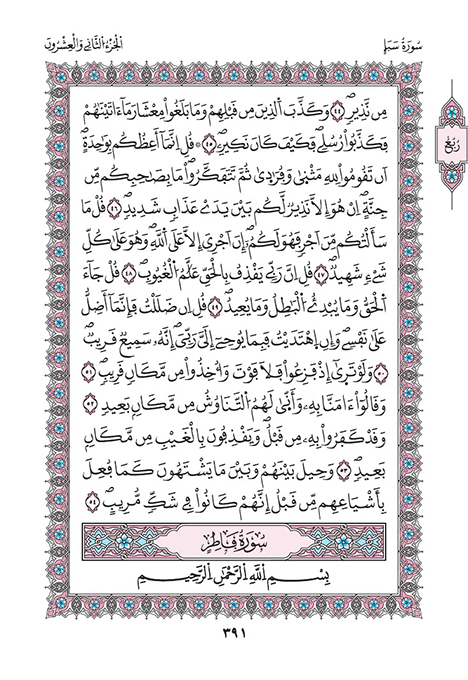 سُورَةُ سَبَإٍ
اَلْجُزْءُ اَلثَّانِي وَالْعِشْرُونَ
رُبُعْ
مِن نَّذِيرٖۖ ٤٤ وَكَذَّبَ اَلذِينَ مِن قَبْلِهِمْ وَمَا بَلَغُواْ مِعْشَارَ مَآ ءَاتَيْنَٰهُمْ
فَكَذَّبُواْ رُسُلِےۖ فَكَيْفَ كَانَ نَكِيرِۦۖ ٤٥ قُلِ اِنَّمَآ أَعِظُكُم بِوَٰحِدَةٍۖ
اَن تَقُومُواْ لِلهِ مَثْنَىٰ وَفُرَٰدَىٰ ثُمَّ تَتَفَكَّرُواْۖ مَا بِصَٰحِبِكُم مِّن
جِنَّةٍۖ اِنْ هُوَ إِلَّا نَذِيرٞ لَّكُم بَيْنَ يَدَےْ عَذَابٖ شَدِيدٖۖ ٤٦ قُلْ مَا
سَأَلْتُكُم مِّنَ اَجْرٖ فَهُوَ لَكُمُۥٓۖ إِنَ اَجْرِيَ إِلَّا عَلَى اَللَّهِۖ وَهُوَ عَلَىٰ كُلِّ
شَےْءٖ شَهِيدٞۖ ٤٧ قُلِ اِنَّ رَبِّے يَقْذِفُ بِالْحَقِّ عَلَّٰمُ اُلْغُيُوبِۖ ٤٨ قُلْ جَآءَ
اَلْحَقُّ وَمَا يُبْدِئُ اُلْبَٰطِلُ وَمَا يُعِيدُۖ ٤٩ قُلِ اِن ضَلَلْتُ فَإِنَّمَآ أَضِلُّ
عَلَىٰ نَفْسِےۖ وَإِنِ اِهْتَدَيْتُ فَبِمَا يُوحِےٓ إِلَىَّ رَبِّيَۖ إِنَّهُۥ سَمِيعٞ قَرِيبٞۖ
٥٠ وَلَوْ تَرَىٰٓ إِذْ فَزِعُواْ فَلَا فَوْتَ وَأُخِذُواْ مِن مَّكَانٖ قَرِيبٖۖ ٥١
وَقَالُوٓاْ ءَامَنَّا بِهِۦۖ وَأَنَّىٰ لَهُمُ اُلتَّنَاوُشُ مِن مَّكَانِۢ بَعِيدٖۖ ٥٢
وَقَدْ كَفَرُواْ بِهِۦ مِن قَبْلُۖ وَيَقْذِفُونَ بِالْغَيْبِ مِن مَّكَانِۢ
بَعِيدٖۖ ٥٣ وَحِيلَ بَيْنَهُمْ وَبَيْنَ مَا يَشْتَهُونَ كَمَا فُعِلَ
بِأَشْيَاعِهِم مِّن قَبْلُۖ إِنَّهُمْ كَانُواْ فِے شَكّٖ مُّرِيبٖۖ ٥٤
سُورَةُ فَاطِرٍ
بِسْمِ اِللَّهِ اِلرَّحْمَٰنِ اِلرَّحِيمِ
٣٩١